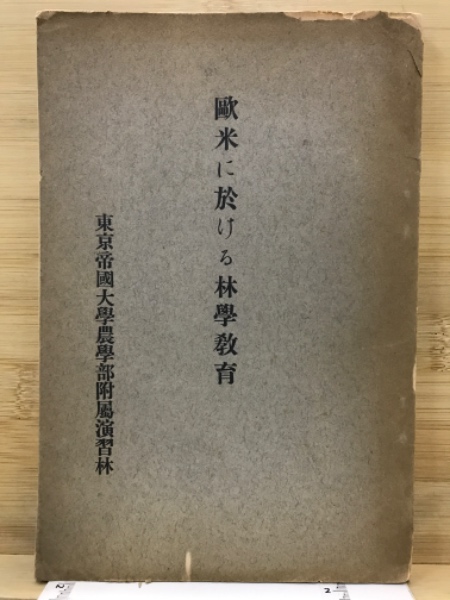 歐米に於ける林學敎育
東京帝國大學農學部附屬演習林